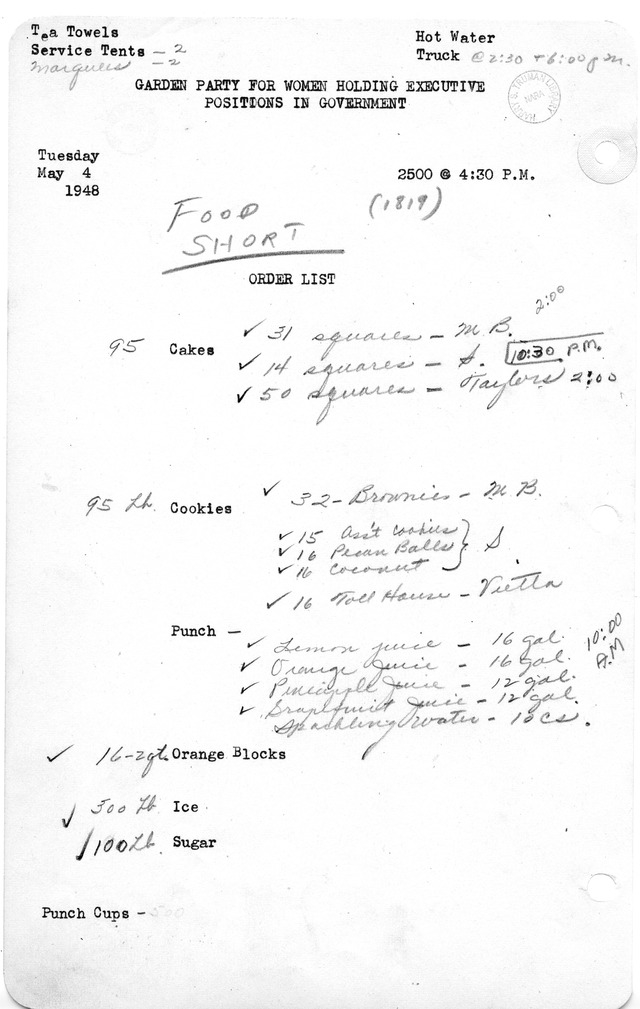 Tea Towels
Service Tents - 2
Marquees - 2
Hot Water
Truck @ 2:30 + 6:00 p.m.
GARDEN PARTY FOR WOMEN HOLDING EXECUTIVE
POSITIONS IN GOVERNMENT
HARRY S. TRUMAN LIBRARY
NARA
Tuesday
May 4
1948
2500 @ 4:30 P.M.
(1819)
FOOD
SHORT
ORDER LIST
2:00
95 Cakes
✓ 31 squares - M.B.
✓ 14 squares - S. 10:30 P.M.
✓ 50 squares - Taylors 2:00
95 Lb. Cookies
✓ 32 - Brownies - M.B.
✓ 15 Ass't cookies
✓ 16 Pecan Balls } S.
✓ 16 Coconut
✓ 16 Toll House - Vietta
Punch -
10:00 A.M
✓ Lemon juice - 16 gal.
✓ Orange Juice - 16 gal.
✓ Pineapple Juice - 12 gal.
✓ Grapefruit Juice - 12 gal.
Sparkling Water - 10 cs.
✓ 16-2qt. Orange Blocks
✓ 300 Lb Ice
✓ 100 Lb. Sugar
Punch Cups - 500